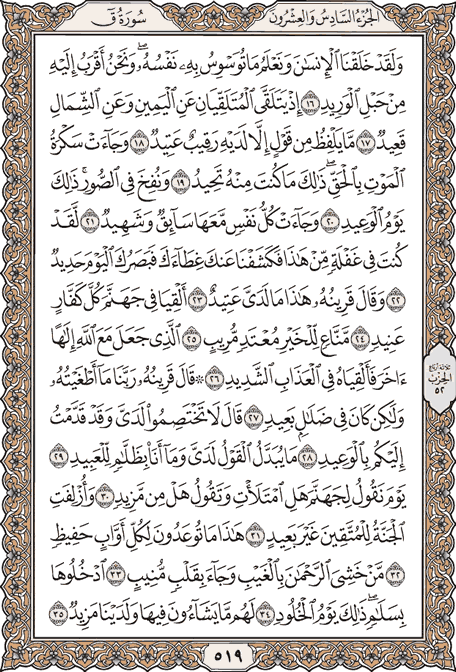 الجزء السادس والعشرون
سورة ق
وَلَقَدۡ خَلَقۡنَا ٱلۡإِنسَٰنَ وَنَعۡلَمُ مَا تُوَسۡوِسُ بِهِۦ نَفۡسُهُۥۖ وَنَحۡنُ أَقۡرَبُ إِلَيۡهِ
مِنۡ حَبۡلِ ٱلۡوَرِيدِ ١٦ إِذۡ يَتَلَقَّى ٱلۡمُتَلَقِّيَانِ عَنِ ٱلۡيَمِينِ وَعَنِ ٱلشِّمَالِ
قَعِيدٞ ١٧ مَّا يَلۡفِظُ مِن قَوۡلٍ إِلَّا لَدَيۡهِ رَقِيبٌ عَتِيدٞ ١٨ وَجَآءَتۡ سَكۡرَةُ
ٱلۡمَوۡتِ بِٱلۡحَقِّۖ ذَٰلِكَ مَا كُنتَ مِنۡهُ تَحِيدُ ١٩ وَنُفِخَ فِي ٱلصُّورِۚ ذَٰلِكَ
يَوۡمُ ٱلۡوَعِيدِ ٢٠ وَجَآءَتۡ كُلُّ نَفۡسٖ مَّعَهَا سَآئِقٞ وَشَهِيدٞ ٢١ لَّقَدۡ
كُنتَ فِي غَفۡلَةٖ مِّنۡ هَٰذَا فَكَشَفۡنَا عَنكَ غِطَآءَكَ فَبَصَرُكَ ٱلۡيَوۡمَ حَدِيدٞ
٢٢ وَقَالَ قَرِينُهُۥ هَٰذَا مَا لَدَيَّ عَتِيدٌ ٢٣ أَلۡقِيَا فِي جَهَنَّمَ كُلَّ كَفَّارٍ
عَنِيدٖ ٢٤ مَّنَّاعٖ لِّلۡخَيۡرِ مُعۡتَدٖ مُّرِيبٍ ٢٥ ٱلَّذِي جَعَلَ مَعَ ٱللَّهِ إِلَٰهًا
ءَاخَرَ فَأَلۡقِيَاهُ فِي ٱلۡعَذَابِ ٱلشَّدِيدِ ٢٦ ۞ قَالَ قَرِينُهُۥ رَبَّنَا مَآ أَطۡغَيۡتُهُۥ
وَلَٰكِن كَانَ فِي ضَلَٰلِۭ بَعِيدٖ ٢٧ قَالَ لَا تَخۡتَصِمُواْ لَدَيَّ وَقَدۡ قَدَّمۡتُ
إِلَيۡكُم بِٱلۡوَعِيدِ ٢٨ مَا يُبَدَّلُ ٱلۡقَوۡلُ لَدَيَّ وَمَآ أَنَا۠ بِظَلَّٰمٖ لِّلۡعَبِيدِ ٢٩
يَوۡمَ نَقُولُ لِجَهَنَّمَ هَلِ ٱمۡتَلَأۡتِ وَتَقُولُ هَلۡ مِن مَّزِيدٖ ٣٠ وَأُزۡلِفَتِ
ٱلۡجَنَّةُ لِلۡمُتَّقِينَ غَيۡرَ بَعِيدٍ ٣١ هَٰذَا مَا تُوعَدُونَ لِكُلِّ أَوَّابٍ حَفِيظٖ
٣٢ مَّنۡ خَشِيَ ٱلرَّحۡمَٰنَ بِٱلۡغَيۡبِ وَجَآءَ بِقَلۡبٖ مُّنِيبٍ ٣٣ ٱدۡخُلُوهَا
بِسَلَٰمٖۖ ذَٰلِكَ يَوۡمُ ٱلۡخُلُودِ ٣٤ لَهُم مَّا يَشَآءُونَ فِيهَا وَلَدَيۡنَا مَزِيدٞ ٣٥
ثلاثة أرباع
الحزب
٥٢
٥١٩